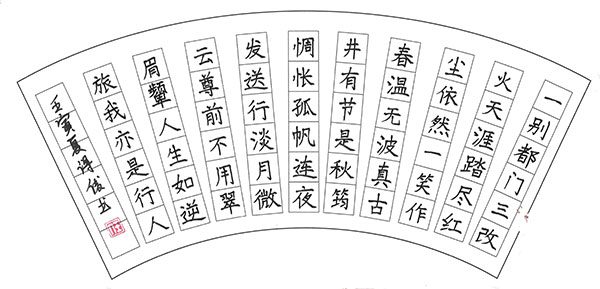 一别都门三改
火天涯踏尽红
尘依然一笑作
春温无波真古
井有节是秋筠
惆怅孤帆连夜
发送行淡月微
云尊前不用翠
眉颦人生如逆
旅我亦是行人
壬寅夏